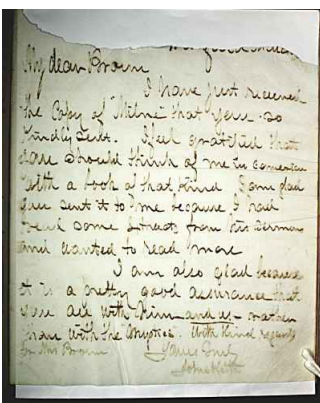 My dear Brown
I have just received
the Copy of "Milne" that you so
kindly sent. I feel gratified that
you should think of me in connection
with a book of that kind I am glad
you sent it to me because I had
read some extracts from his sermons
and wanted to read more
I am also glad because
it is a pretty good assurance that
you are with Him and us - rather
than with the With kind regards
for Mrs Brown Yours truly
John